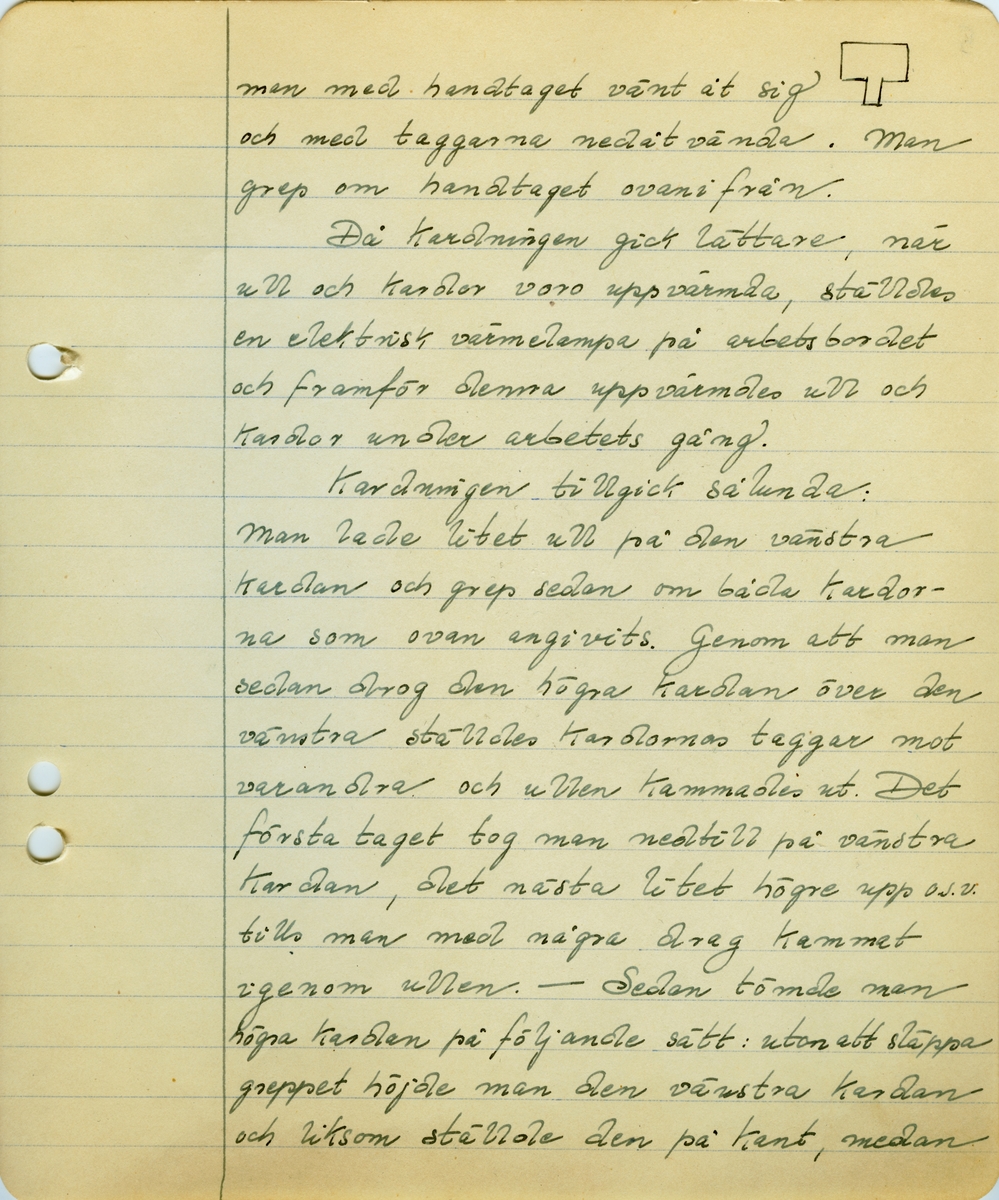 man med handtaget vänt åt sig
och med taggarna nedåtvända. Man
grep om handtaget ovanifrån.
Då kardningen gick lättare, när
ull och kardor voro uppvärmda, ställdes
en elektrisk värmelampa på arbetsbordet
och framför denna uppvärmdes ull och
kardor under arbetets gång.
Kardningen tillgick sålunda:
Man lade litet ull på den vänstra
kardan och grep sedan om båda kardor-
na som ovan angivits. Genom att man
sedan drog den högra kardan över den
vänstra ställdes kardornas taggar mot
varandra och ullen kammades ut. Det
första taget tog man nedtill på vänstra
kardan, det nästa litet högre upp o.s.v.
tills man med några drag kammat
igenom ullen. — Sedan tömde man
högra kardan på följande sätt: utan att släppa
greppet höjde man den vänstra kardan
och liksom ställde den på kant, medan